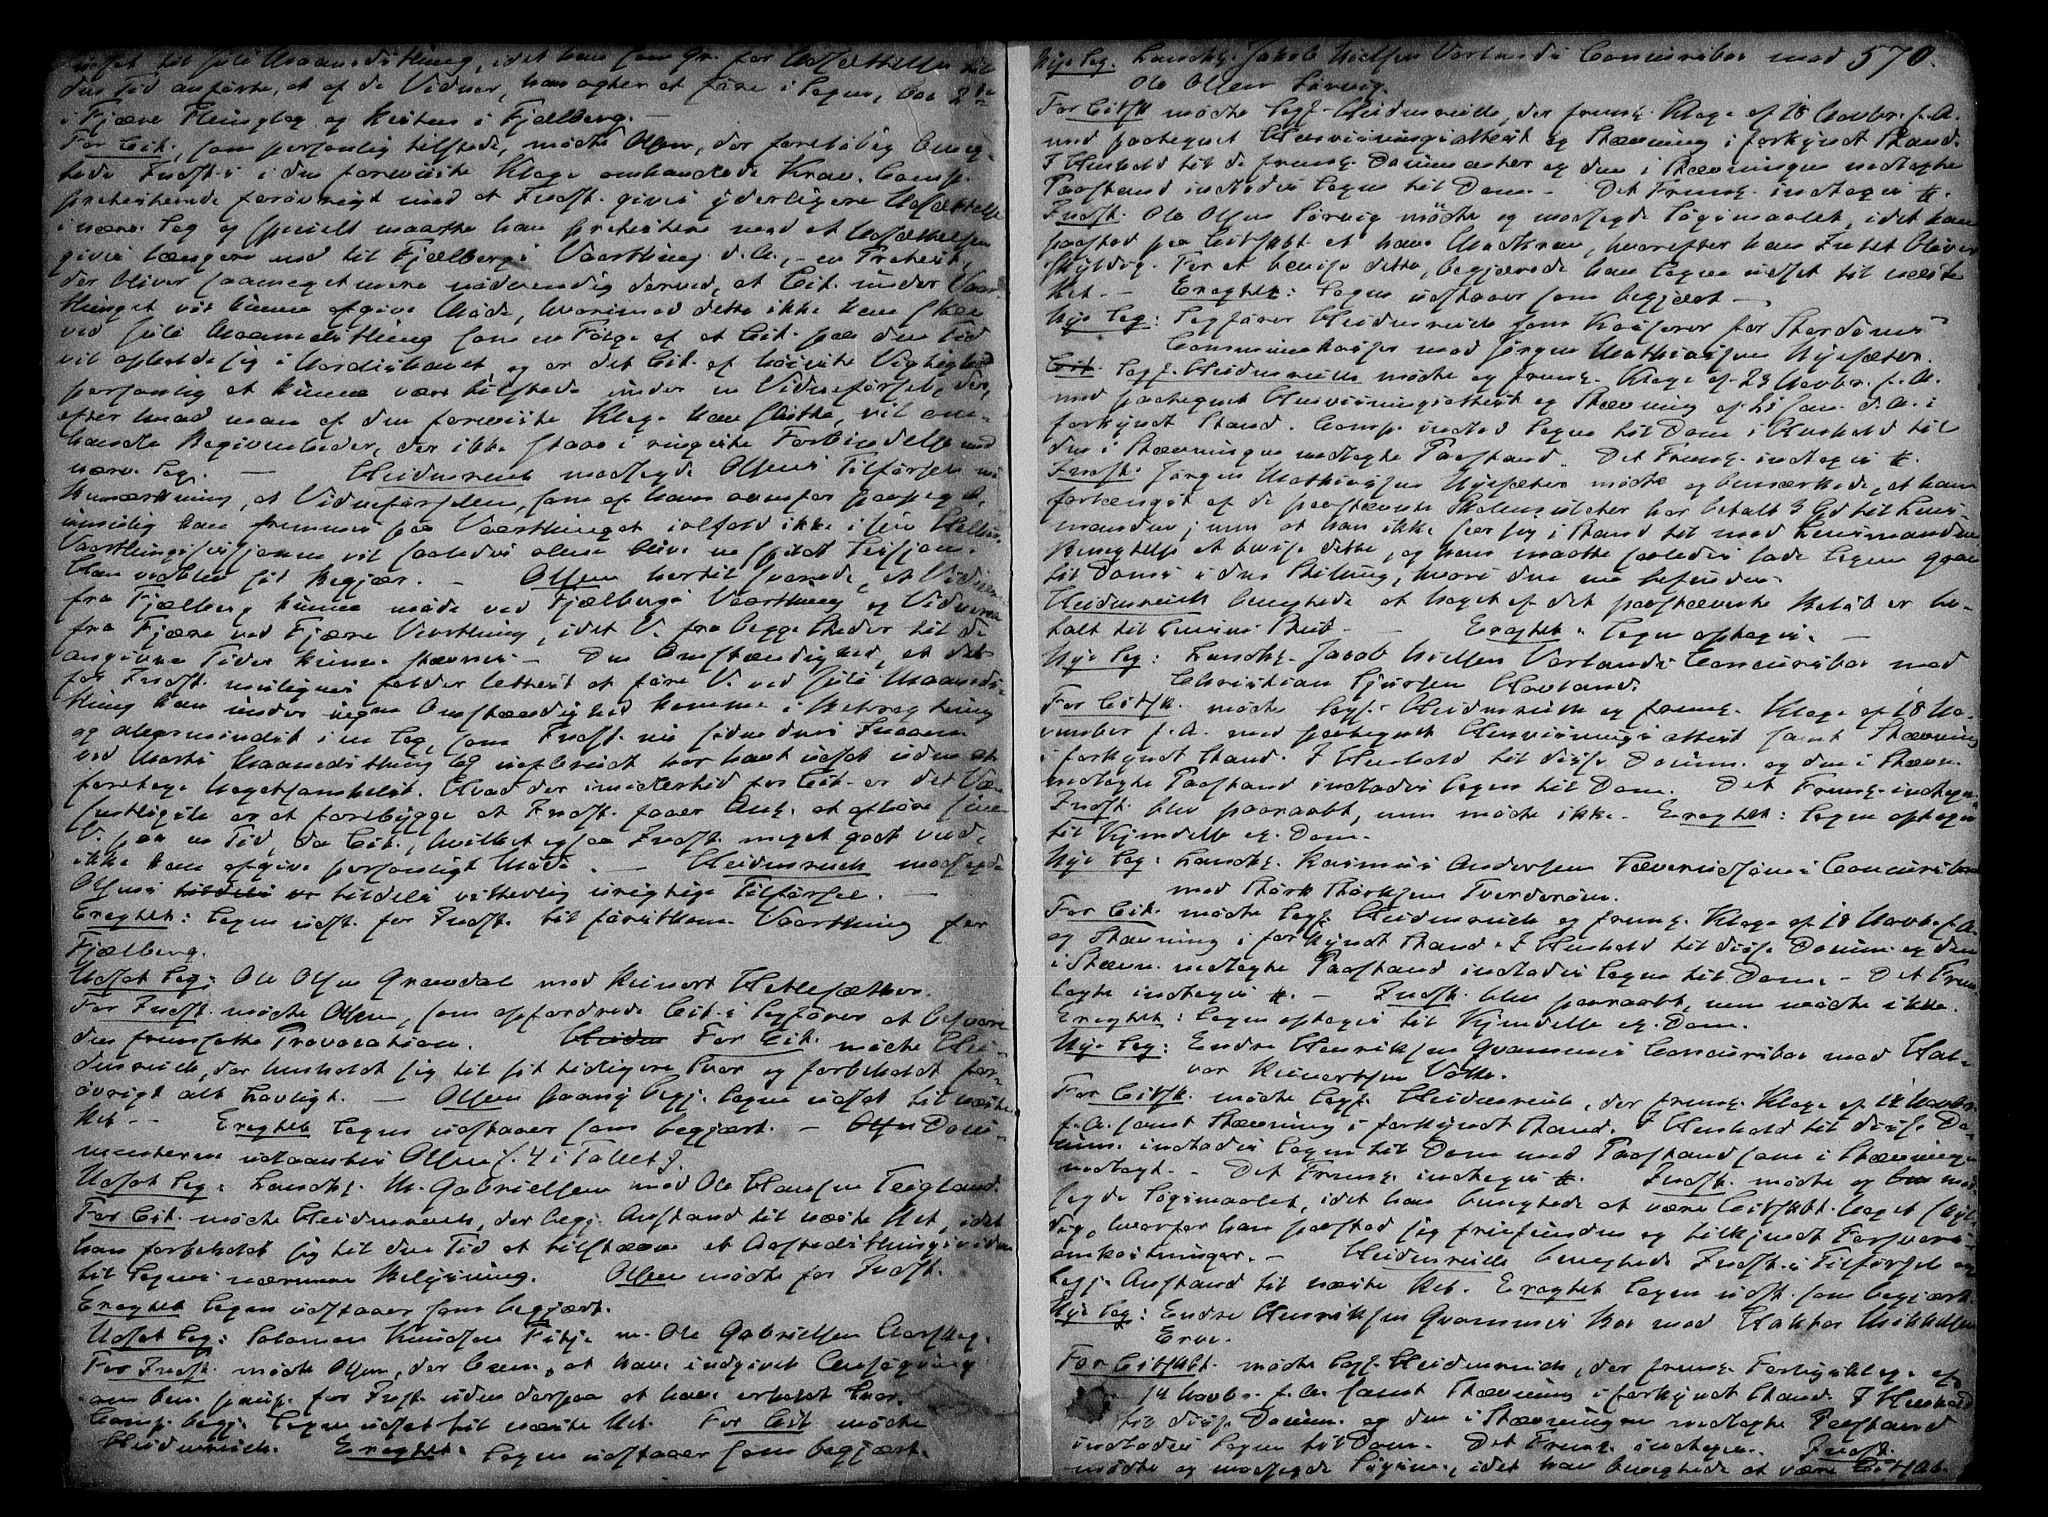 udsat til Juli Maanedsthing, idet han som Gr. for Udsættelsen til
den Tid anførte, at af de Vidner, han agter at føre i Sagen, bor 2de
i Fjære Thinglag og Resten i Fjælberg. –
For Cit., som personlig tilstede, mødte Olsen, der foreløbig benæg-
tede Indst.s i den foreviste Klage omhandlede Krav. Comp.
protesterede forøvrigt mod at Indst. gives yderligere Udsættelse
i nærv. Sag og specielt maatte han protestere mod at Udsættelsen
gives længere end til Fjælbergs Vaarthing d. A., – en Protest,
der bliver saameget mere nødvendig derved, at Cit. under Vaar-
thinget vil kunne afgive Møde, hvorimod dette ikke kan skee
ved Juli Maanedsthing som en Følge af at Cit. paa den Tid
vil opholde sig i Nordishavet, og er det Cit. af høieste Vigtighed
personlig at kunne være tilstede under en Vidneførsel, der,
efter hvad man af den foreviste Klage kan slutte, vil om-
handle Begivenheder, der ikke staar i ringeste Forbindelse med
nærv. Sag. – Heidenreich modsagde Olsens Tilførsel m.
Bemærkning, at Vidneførselen, som af ham ovenfor paapeget,
umulig kan fremmes paa Vaarthinget ialfald ikke i sin Helhed.
Vaarthingssessionen vil saaledes alene blive en spildt Session.
Han vedblev sit Begjær. – Olsen hertil svarede, at Vidnerne
fra Fjælberg kunne møde ved Fjælbergs Vaarthing og Vidnerne
fra Fjære ved Fjære Vaarthing, idet V. fra begge Steder til de
angivne Tider kunne stævnes. – Den Omstændighed, at det
for Indst. muligens falder lettest at føre V. ved Juli Maaneds-
thing kan under ingen Omstændighed komme i Betragtning
og allermindst i en Sag, som Indst. nu siden dens Incam.
ved Marts Maanedsthing har havt udsat uden at
foretage Nogetsomhelst. Hvad der imidlertid for Cit. er det Væ-
sentligste er at forebygge at Indst. faaer Anl. at afhøre sine
V. paa en Tid, da Cit., hvilket ogsaa Indst. meget godt veed,
ikke kan afgive personligt Møde. – Heidenreich modsagde
Olsens tildels vitterlig urigtige Tilførsel. –
Eragtet: Sagen udst. for Indst. til førstkom. Vaarthing for
Fjælberg.
Udsat Sag: Ole Olsen Grændal mod Reinert Hetlesæther.
For Indst. mødte Olsen, som opfordrede Cit.s Sagfører at besvare
den fremsatte Provocation. For Cit. mødte Hei-
denreich, der henholdt sig til sit tidligere Svar og forbeholdt for-
øvrigt alt Lovligt. – Olsen paany begj. Sagen udsat til næste
Ret. – Eragtet Sagen udstaaer som begjært. – Docu-
menterne udlaantes Olsen (4 i Tallet).
Udsat Sag: Handl. M. Gabrielsen mod Ole Hansen Teigland.
For Cit. mødte Heidenreich, der begj. Anstand til næste Ret, idet
han forbeholdt sig til den Tid at tilstævne et Aastedsthingsvidne
til Sagens nærmere Belysning. Olsen mødte for Indst.
Eragtet Sagen udstaaer som begjært.
Udsat Sag: Salomon Knudsen Fitje m. Ole Gabrielsen
For Indst. mødte Olsen, der bem., at have indgivet Ansøgning
om ben. paup. for Indst. uden derpaa at have erholdt Svar.
Comp. begj. Sagen udsat til næste Ret. For Cit. mødte
Heidenreich. Eragtet: Sagen udstaaer som begjært.
570.
Nye Sag. Handl. Jakob Nielsen Vorlands Concursbo mod
Ole Olsen Sørvig.
For Citsk. mødte Sagf. Heidenreich, der freml. Klage af 18 Novbr. f. A.
med paategnet Henvisningsattest og Stævning i forkyndt Stand.
I Henhold til de freml. Documenter og den i Stævningen nedlagte
Paastand indlodes Sagen til Dom. – Det Freml. indtages #.
Indst. Ole Olsen Sørvig mødte og modsagde Søgsmaalet, idet han
paastod paa Citskbt. at have Modkrav, hvorefter han Intet bliver
skyldig. For at bevise dette, begjærede han Sagen udsat til næste
Ret. – Eragtet: Sagen udstaaer som begjært –
Nye Sag: Sagfører Heidenreich som Kasserer for Stordøens
Communekasse mod Jørgen Mathiassen Nysæter.
Cit. Sagf. Heidenreich mødte og freml. Klage af 23 Novbr. f. A.
med paategnet Henvisningsattest og Stævning af Jan. d. A. i
forkyndt Stand. Comp. indlod Sagen til Dom i Henhold til
den i Stævningen nedlagte Paastand. Det Freml. indtages #.
Indst. Jørgen Mathiassen Nysæter mødte og bemærkede, at han
forlængst af de paastævnte Skoleudgifter har betalt til Lens-
manden; men at han ikke seer sig i Stand til mod Lensmandens
Benegtelse at bevise dette, og han maatte saaledes lade Sagen gaae
til Doms i den Stilling, hvori den nu befindes.
Heidenreich benegtede at Noget af det paastævnte Beløb er be-
talt til Lensm. – Eragtet: Sagen optages. –
Nye Sag: Handl. Jacob Nielsen Vorlands Concursbo mod
Christian Sjursen Hovland.
For Citsk. mødte Sagf. Heidenreich og freml. Klage af 18 No-
vember f. A. med paategnet Henvisningsattest samt Stævning
i forkyndt Stand. I Henhold til disse Docum. og den i Stævn.
nedlagte Paastand indlodes Sagen til Dom. Det Freml. indtages.
Indst. blev paaraabt, men mødte ikke. Eragtet: Sagen optages
til Kjendelse eg. Dom.
Nye Sag: Handl. Rasmus Andersen Concursbo
mod Størk Størksen Tverderøen.
For Cit. mødte Sagf. Heidenreich og freml. Klage af 18 Novb. f. A.
og Stævning i forkyndt Stand. I Henhold til disse Docum. og den
i Stævn. nedlagte Paastand indlodes Sagen til Dom. – Det Frem-
lagte indtages #. – Indst. blev paaraabt, men mødte ikke.
Eragtet: Sagen optages til Kjendelse eg. Dom.
Nye Sag: Endre Henriksen Qvammens Concursbo mod Hal-
vor Reinertsen Vatle.
For Citsk. mødte Sagf. Heidenreich, der freml. Klage af 14 Novbr.
f. A. samt Stævning i forkyndt Stand. I Henhold til disse Do-
cum. indlodes Sagen til Dom med Paastand som i Stævningen
nedlagt. – Det Freml. indtages #. Indst. mødte og mod-
sagde Søgsmaalet, idet han benegtede at være Citskbt. Noget skyl-
dig, hvorfor han paastod sig frifunden og tilkjendt Forsvars-
omkostninger. – Heidenreich benegtede Indst.s Tilførsel og
begj. Anstand til næste Ret. Eragtet Sagen udst. som begjært.
Nye Sag: Endre Henriksen Qvammens Bo mod Haktor Mikkelsen
Erve.
For Citskbt. mødte Sagf. Heidenreich, der freml. Forligsklage af
14 Novbr. f. A. samt Stævning i forkyndt Stand. I Henhold
til disse Docum. og den i Stævningen nedlagte Paastand
indlodes Sagen til Dom. Det Freml. indtages. Indst.
mødte og modsagde Søgsm., idet han benegtede at være Citskbt.